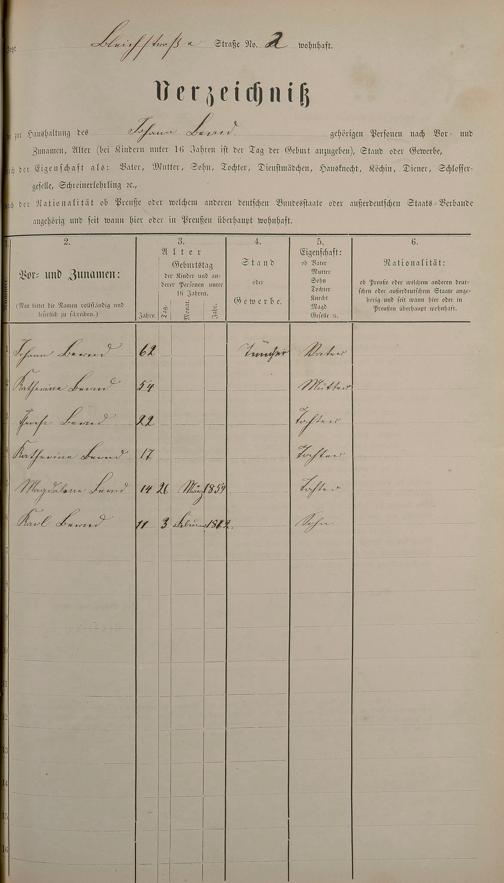 Bleichstraße Straße No. 2 wohnhaft.
Verzeichniß
zur Haushaltung des Johann Bernd gehörigen Personen nach Vor- und
Zunamen, Alter (bei Kindern unter 16 Jahren ist der Tag der Geburt anzugeben), Stand oder Gewerbe,
der Eigenschaft als: Vater, Mutter, Sohn, Tochter, Dienstmädchen, Hausknecht, Köchin, Diener, Schlosser-
geselle, Schreinerlehrling ꝛc.,
der Nationalität ob Preuße oder welchem anderen deutschen Bundesstaate oder außerdeutschen Staats-Verbande
angehörig und seit wann hier oder in Preußen überhaupt wohnhaft.
2. 3. 4. 5. 6.
Vor- und Zunamen:
(Man bittet die Namen vollständig und
leserlich zu schreiben.)
Alter
Geburtstag
der Kinder und an-
derer Personen unter
16 Jahren.
Jahre. Tag. Monat. Jahr.
Stand
oder
Gewerbe.
Eigenschaft:
ob Vater
Mutter
Sohn
Tochter
Knecht
Magd
Geselle ꝛc.
Nationalität:
ob Preuße oder welchem anderen deut-
schen oder außerdeutschem Staate ange-
hörig und seit wann hier oder in
Preußen überhaupt wohnhaft.
Johann Bernd 62 Tüncher Vater
Katherine Bernd 54 Mutter
Bernd 22 Tochter
Katherine Bernd 17 Tochter
Magdalene Bernd 14 26 März 1859 Tochter
Karl Bernd 11 3 Sohn